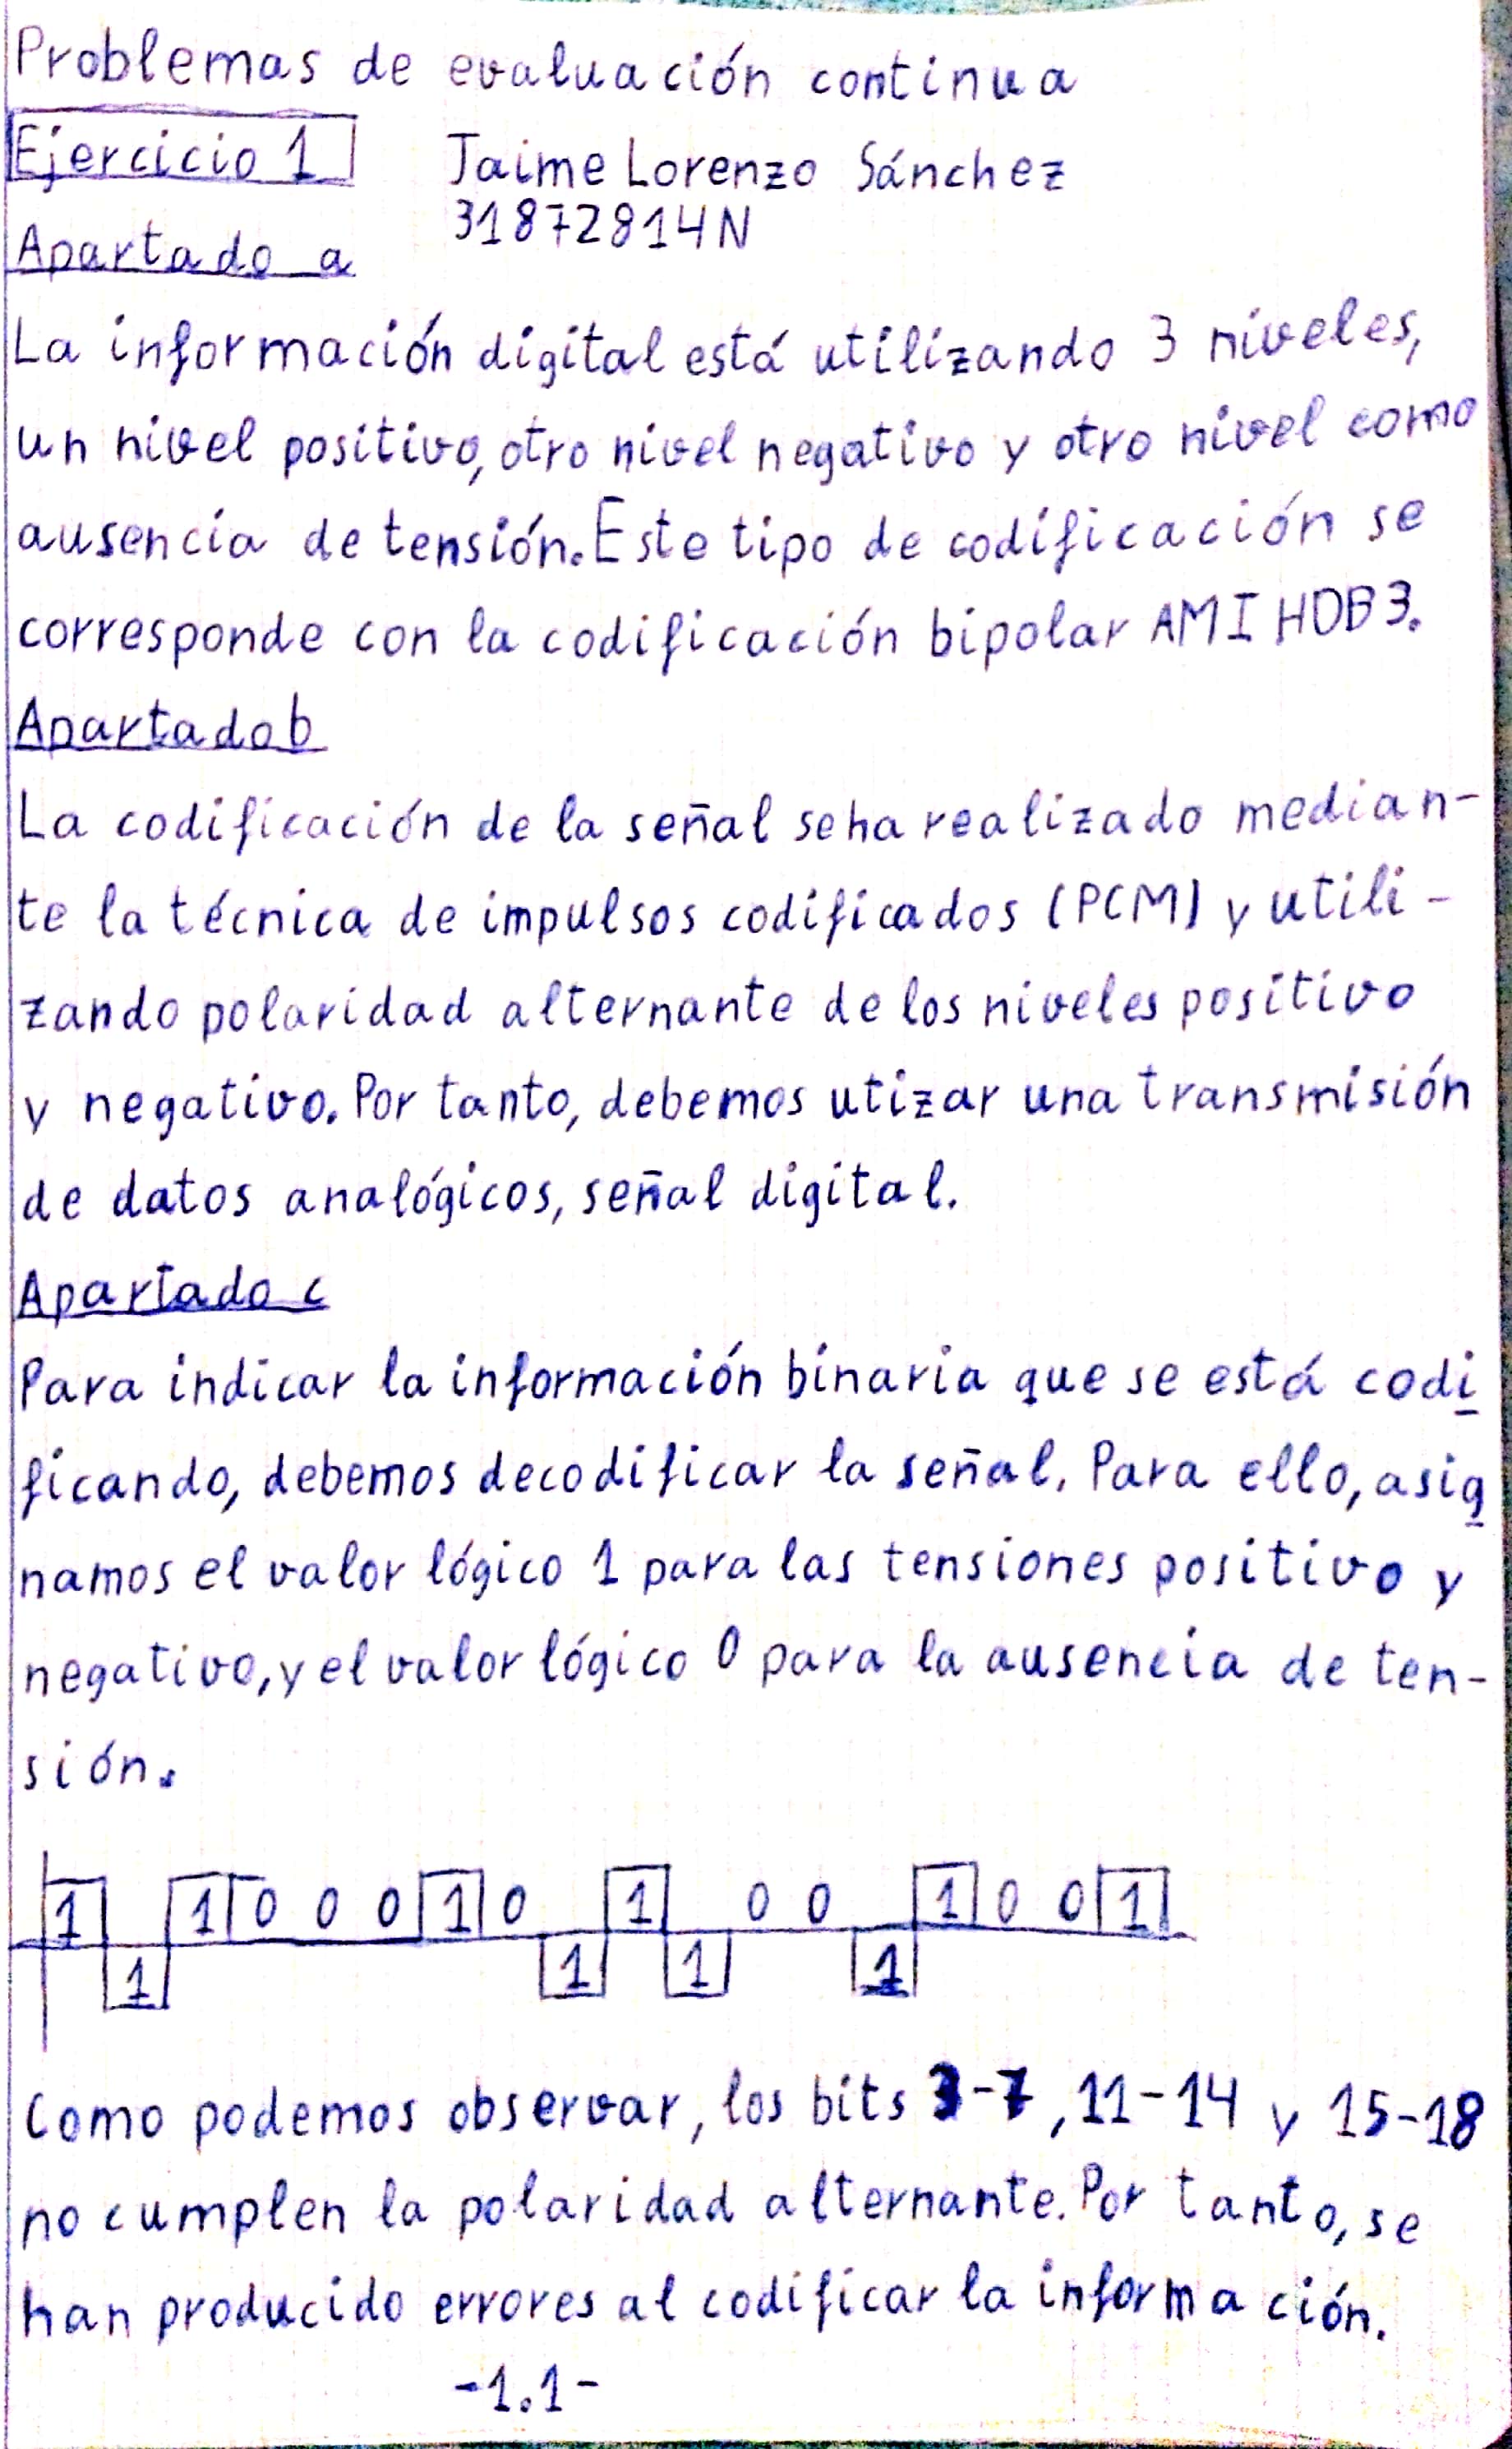 Problemas de evaluación continua
Ejercicio 1
Jaime Lorenzo Sánchez
31872814N
Apartado a
La información digital está utilizando 3 niveles,
un nivel positivo, otro nivel negativo y otro nivel como
ausencia de tensión. Este tipo de codificación se
corresponde con la codificación bipolar AMI HDB3.
Apartado b
La codificación de la señal se ha realizado median-
te la técnica de impulsos codificados (PCM) y utili-
zando polaridad alternante de los niveles positivo
y negativo. Por tanto, debemos utizar una transmisión
de datos analógicos, señal digital.
Apartado c
Para indicar la información binaria que se está codi
ficando, debemos decodificar la señal. Para ello, asig
namos el valor lógico 1 para las tensiones positivo y
negativo, y el valor lógico 0 para la ausencia de ten-
sión.
1 1 0 0 0 1 0 1 0 0 1 0 0 1
1 1 1 1
Como podemos observar, los bits 3-7, 11-14 y 15-18
no cumplen la polaridad alternante. Por tanto, se
han producido errores al codificar la información.
-1.1-